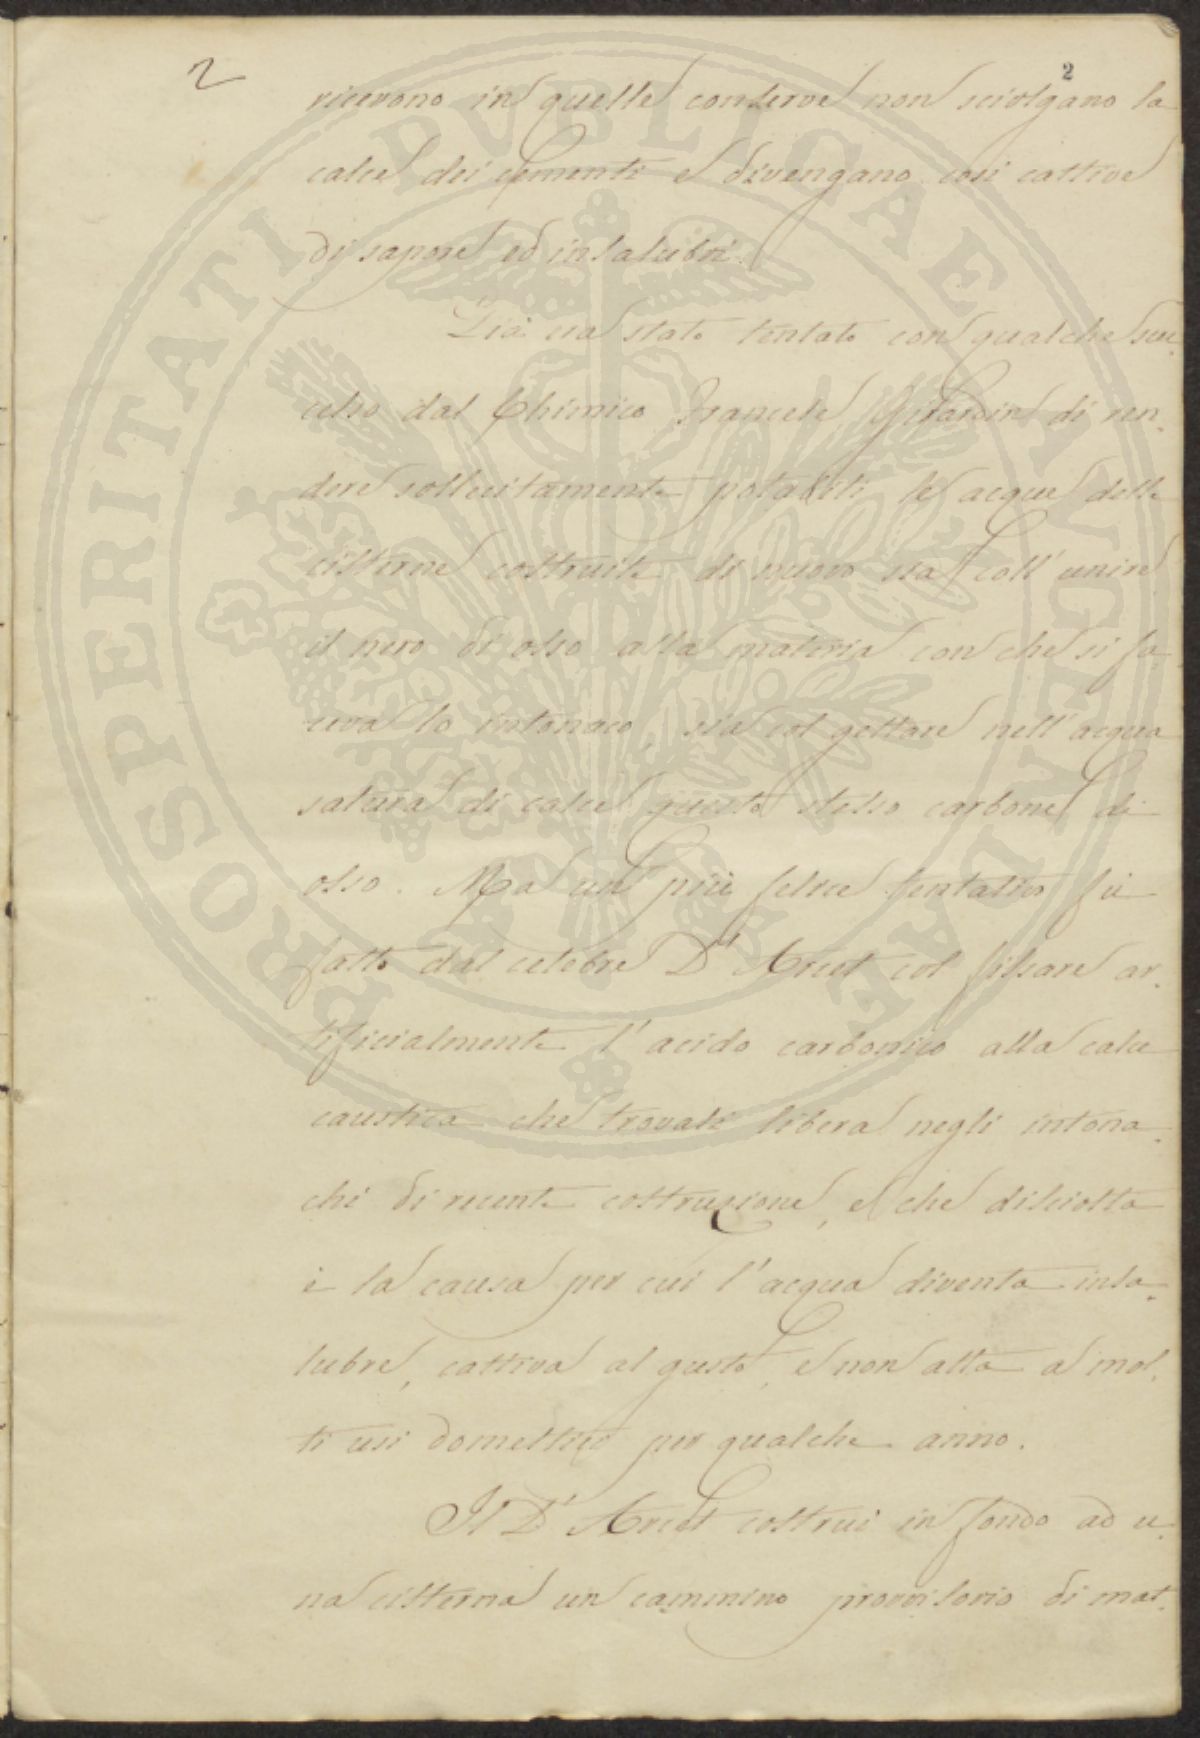 2
2
ricevono in quelle conserve non sciolgano la
calce dei cementi e divengano così cattive
di sapore ed insalubri.
Già era stato tentato con qualche suc-
cesso dal Chimico Francese Girardin di ren-
dere sollecitamente potabili le acque delle
cisterne costruite di nuovo sia coll'unire
il nero di osso alla materia con che si fa-
ceva lo intonaco, sia col gettare nell'acqua
satura di calce questo stesso carbone di
osso. Ma un più felice tentativo fù
fatto dal celebre D'Arcet col fissare ar-
tificialmente l'acido carbonico alla calce
caustica che trovasi libera negli intona-
chi di recente costruzione, e che disciolta
è la causa per cui l'acqua diventa insa-
lubre, cattiva al gusto, e non atta a mol-
ti usi domestici per qualche anno.
Il D'Arcet costruì in fondo ad u-
na cisterna un cammino provvisorio di mat-
PROSPERITATI PVBLICAE AVGENDAE